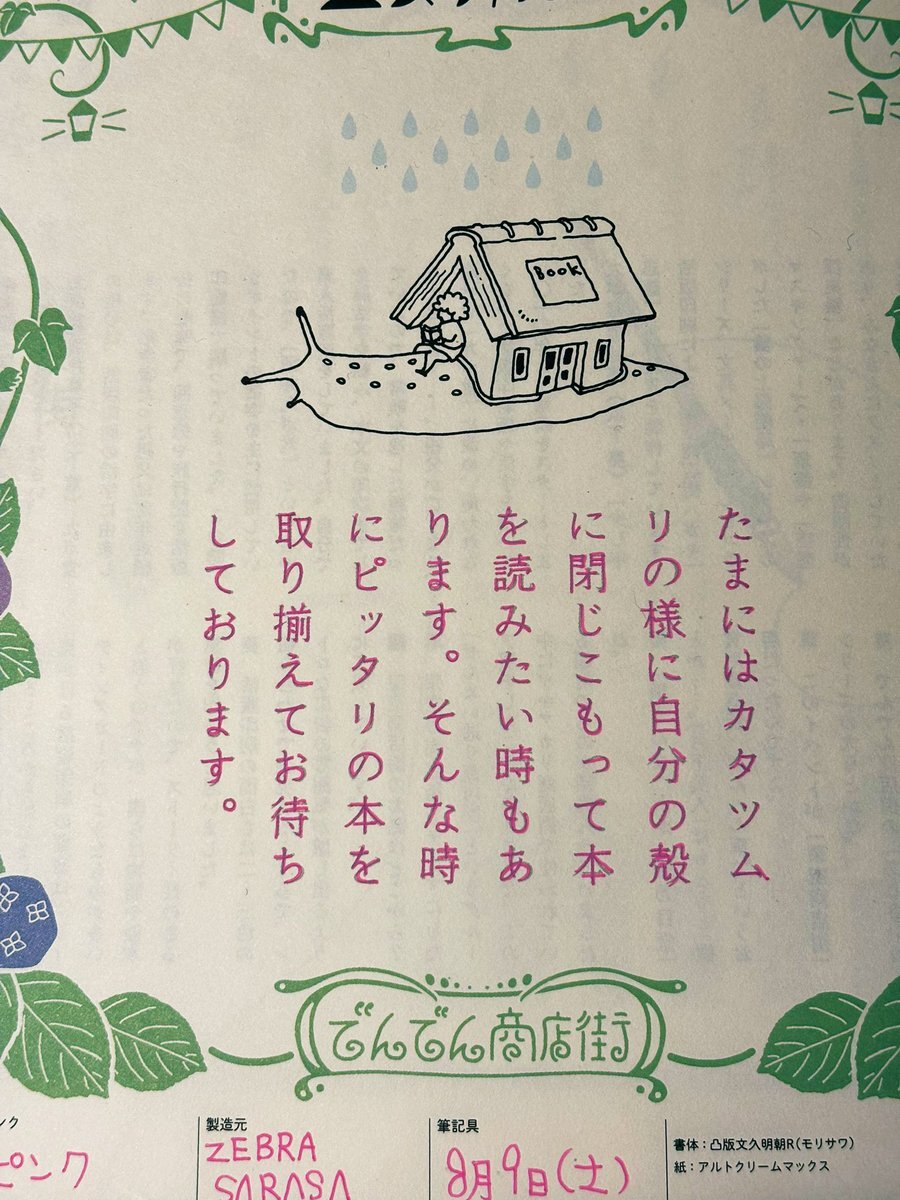 Book
たまにはカタツム
リの様に自分の殻
に閉じこもって本
を読みたい時もあ
ります。そんな時
にピッタリの本を
取り揃えてお待ち
しております。
でんでん商店街
ンク
ピンク
製造元
ZEBRA
SARASA
筆記具
8月9日(土)
書体:凸版文久明朝R(モリサワ)
紙:アルトクリームマックス